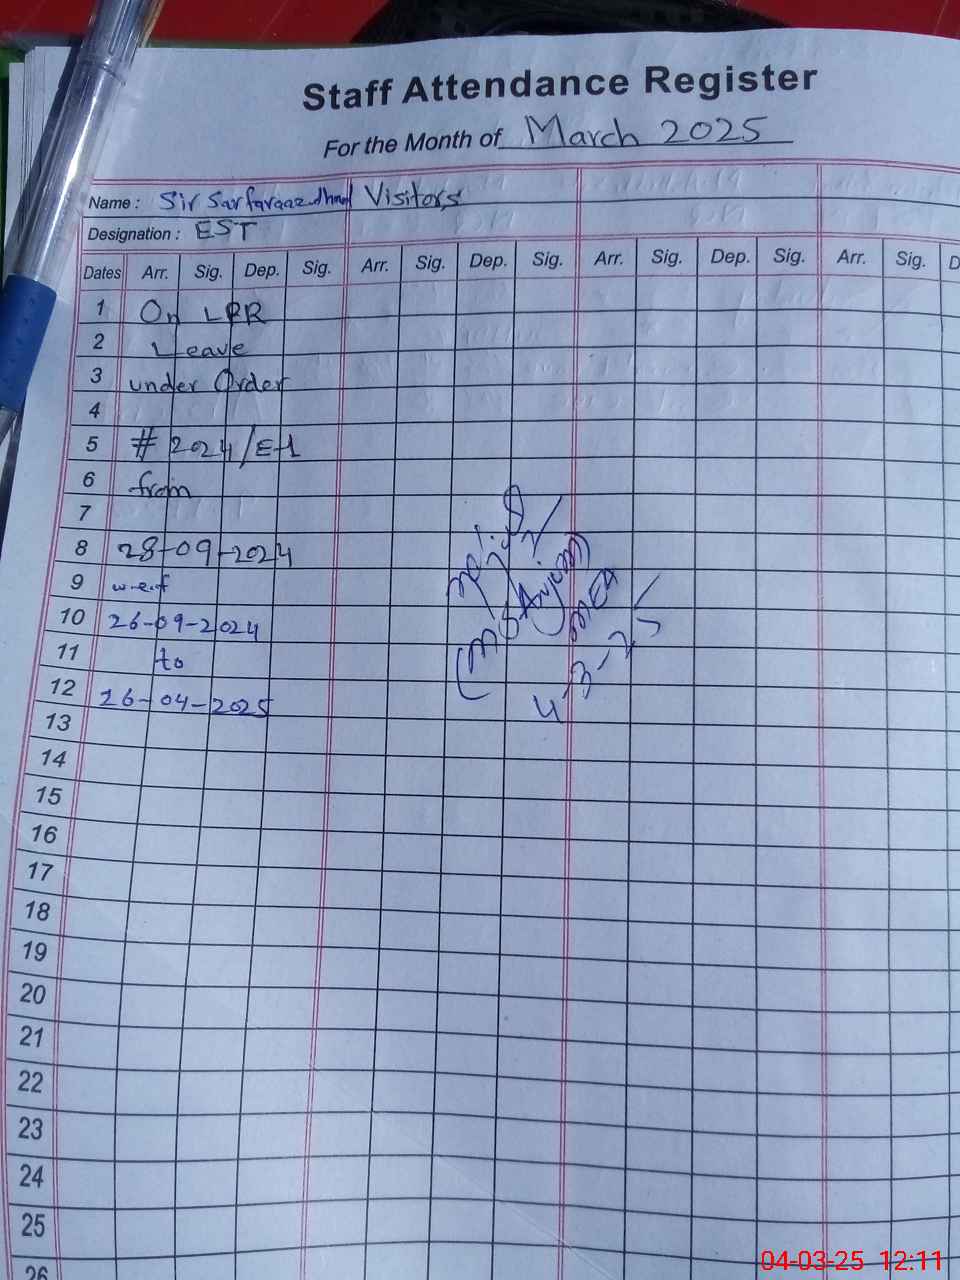 Staff Attendance Register
For the Month of March 2025
Name : Sir Sarfaraazahmad Visitors
Designation : EST
Dates Arr. Sig. Dep. Sig. Arr. Sig. Dep. Sig. Arr. Sig. Dep. Sig. Arr. Sig. D
1 On LPR
2 Leave
3 under Order
4
5 # 2024/E-1
6 from
7
8 28-09-2024
9 w.e.f
10 26-09-2024
11 to
12 26-04-2025
13
14
15
16
17
18
19
20
21
22
23
24
25
26
MEA
4-3-25
04-03-25 12:11